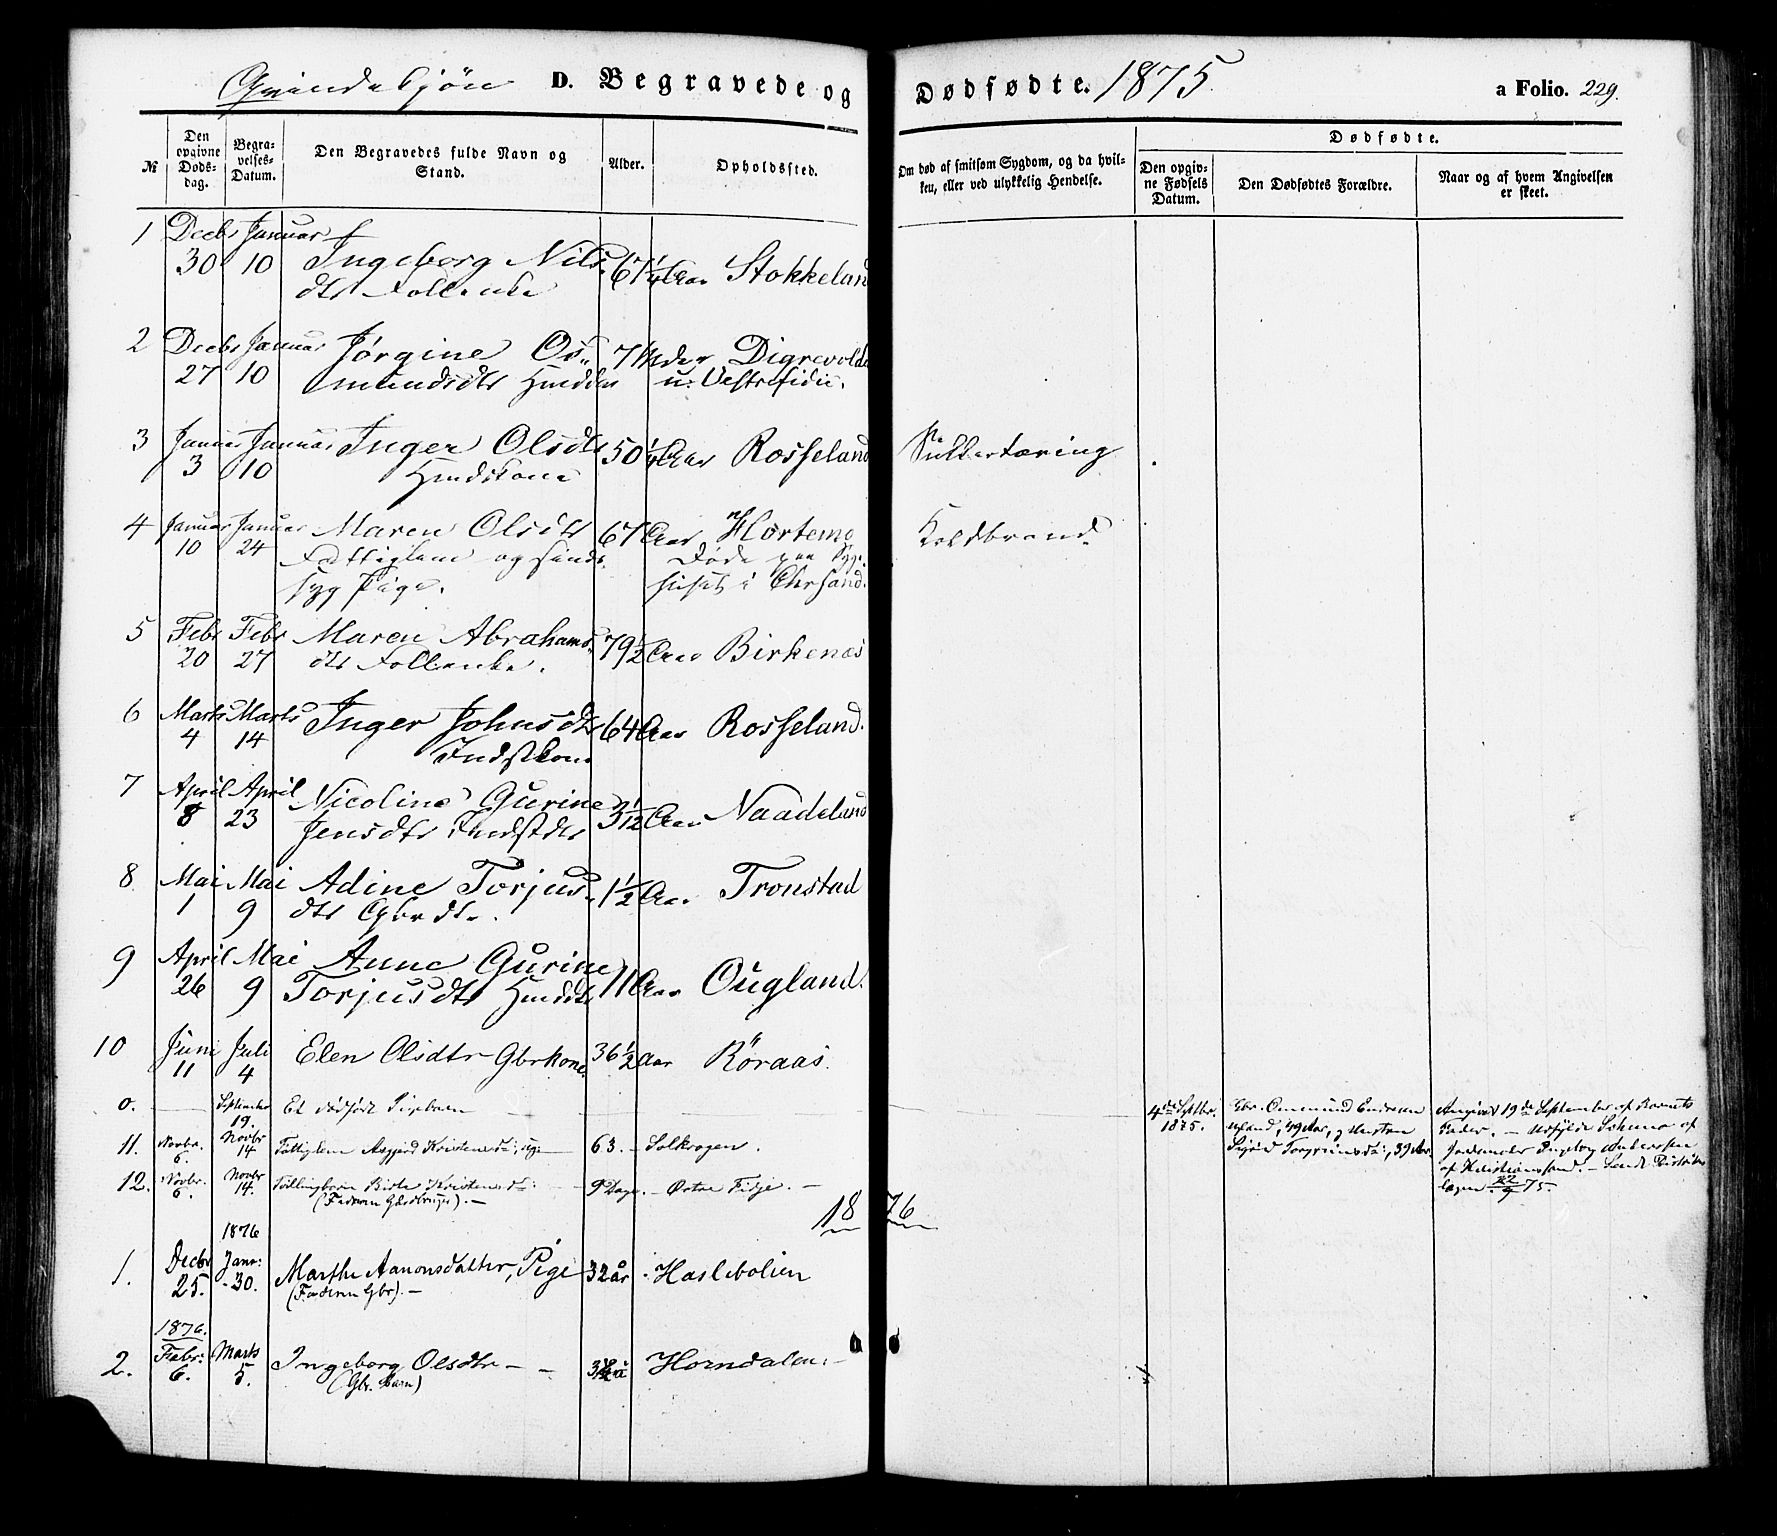 Qvindekjøn D. Begravede og Dødfødte. 1875. a Folio. 229.
№
Den opgivne Dødsdag.
Begravelses-Datum.
Den Begravedes fulde Navn og Stand.
Alder.
Opholdssted.
Om død af smitsom Sygdom, og da hvilken, eller ved ulykkelig Hendelse.
Dødfødte.
Den opgivne Fødsels Datum.
Den Dødfødtes Forældre.
Naar og af hvem Angivelsen er skeet.
1 Decbr Januar
30 10 Ingeborg Nils- 67 1/4 Aar Stokkeland
dtr Follenke
2 Decbr Januar Jørgine Os- Digrevolde
27 10 mundsdtr u. Vestrefidie.
3 Januar Januar Inger Olsdtr 50 1/4 Aar Rosseland
3 10 Huuskone
4 Januar Januar Maren Olsdtr 67 Aar Hortemo Koldbrand
10 24 Fattiglem og sinds- Døde paa Syge-
syg Pige. huset i Chrsand.
5 Febr Febr Maren Abrahams- 79 1/2 Aar Birkenæs
20 27 dtr Follenke.
6 Marts Marts Inger Johnsdtr 64 Aar Rosseland.
4 14 Indstkone
7 April April Nicoline Gurine 3 1/12 Aar Naadeland
8 23 Jensdtr Indstdtr
8 Mai Mai Adine Torjus- 1 1/2 Aar Tronstad
1 9 dtr Gbrdtr.
9 April Mai Anne Gurine 11 Aar Ougland.
26 9 Torjusdtr
10 Juni Juli Elen Olsdtr Gbrkone. 36 1/2 Aar Röraas.
11 4
0. September Et dødfødt Pigebarn 4de Septbr. Gbr. Ommund Endresen Angivet 19de September af Barnets
19. 1875. 49 Aar, og Hustru Fader. – Udfyldt Schema af
11. Novbr. Novbr Fattiglem Asgjerd Kristensd: 63. – Solkrogen. Sigrid Torgrimsd:, 39 Aar. Jordemoder Ingeborg Andersen
6. 14 af Kristianssand. –
12. Novbr. Novbr Tvillingbarn Birte Kristensd: 9 Dage. – Østre Fidje. –
6. 14. (Faderen Gårdbruger). – 22/9 75.
1876
1876
1. Decbr Janr: Marthe Aanonsdatter, Pige 32 år Haslebolien
25. 30. (Faderen Gbr). –
1876.
2. Febr: Marts Ingeborg Olsdtr – – Horndalen: –
6. 5. (Gbr. Barn)